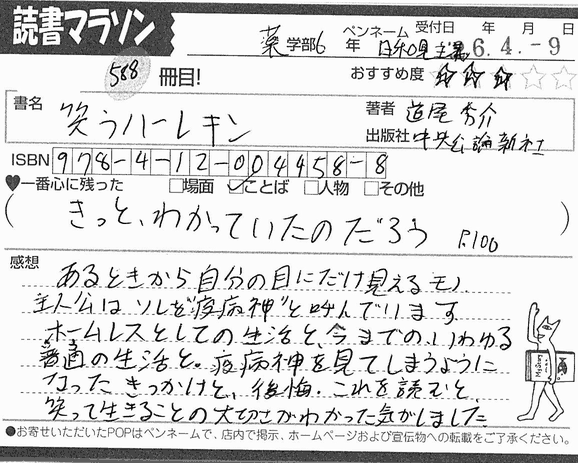 読書マラソン
薬学部6年 ペンネーム 日和見主義 受付日 年 月 日
6.4.-9
588冊目!
おすすめ度 ☆☆☆☆☆
書名 笑うハーレキン
著者 道尾秀介
出版社 中央公論新社
ISBN 978-4-12-004458-8
♥一番心に残った □場面 ☑ことば □人物 □その他
(きっと、わかっていたのだろう P.100)
感想
あるときから自分の目にだけ見えるモノ.
主人公はソレを"疫病神"と呼んでいます
ホームレスとしての生活と、今までの、いわゆる
普通の生活と。疫病神を見てしまうように
なったきっかけと、後悔. これを読むと、
笑って生きることの大切さがわかった気がしました
●お寄せいただいたPOPはペンネームで、店内で掲示、ホームページおよび宣伝物への転載をご了承ください。